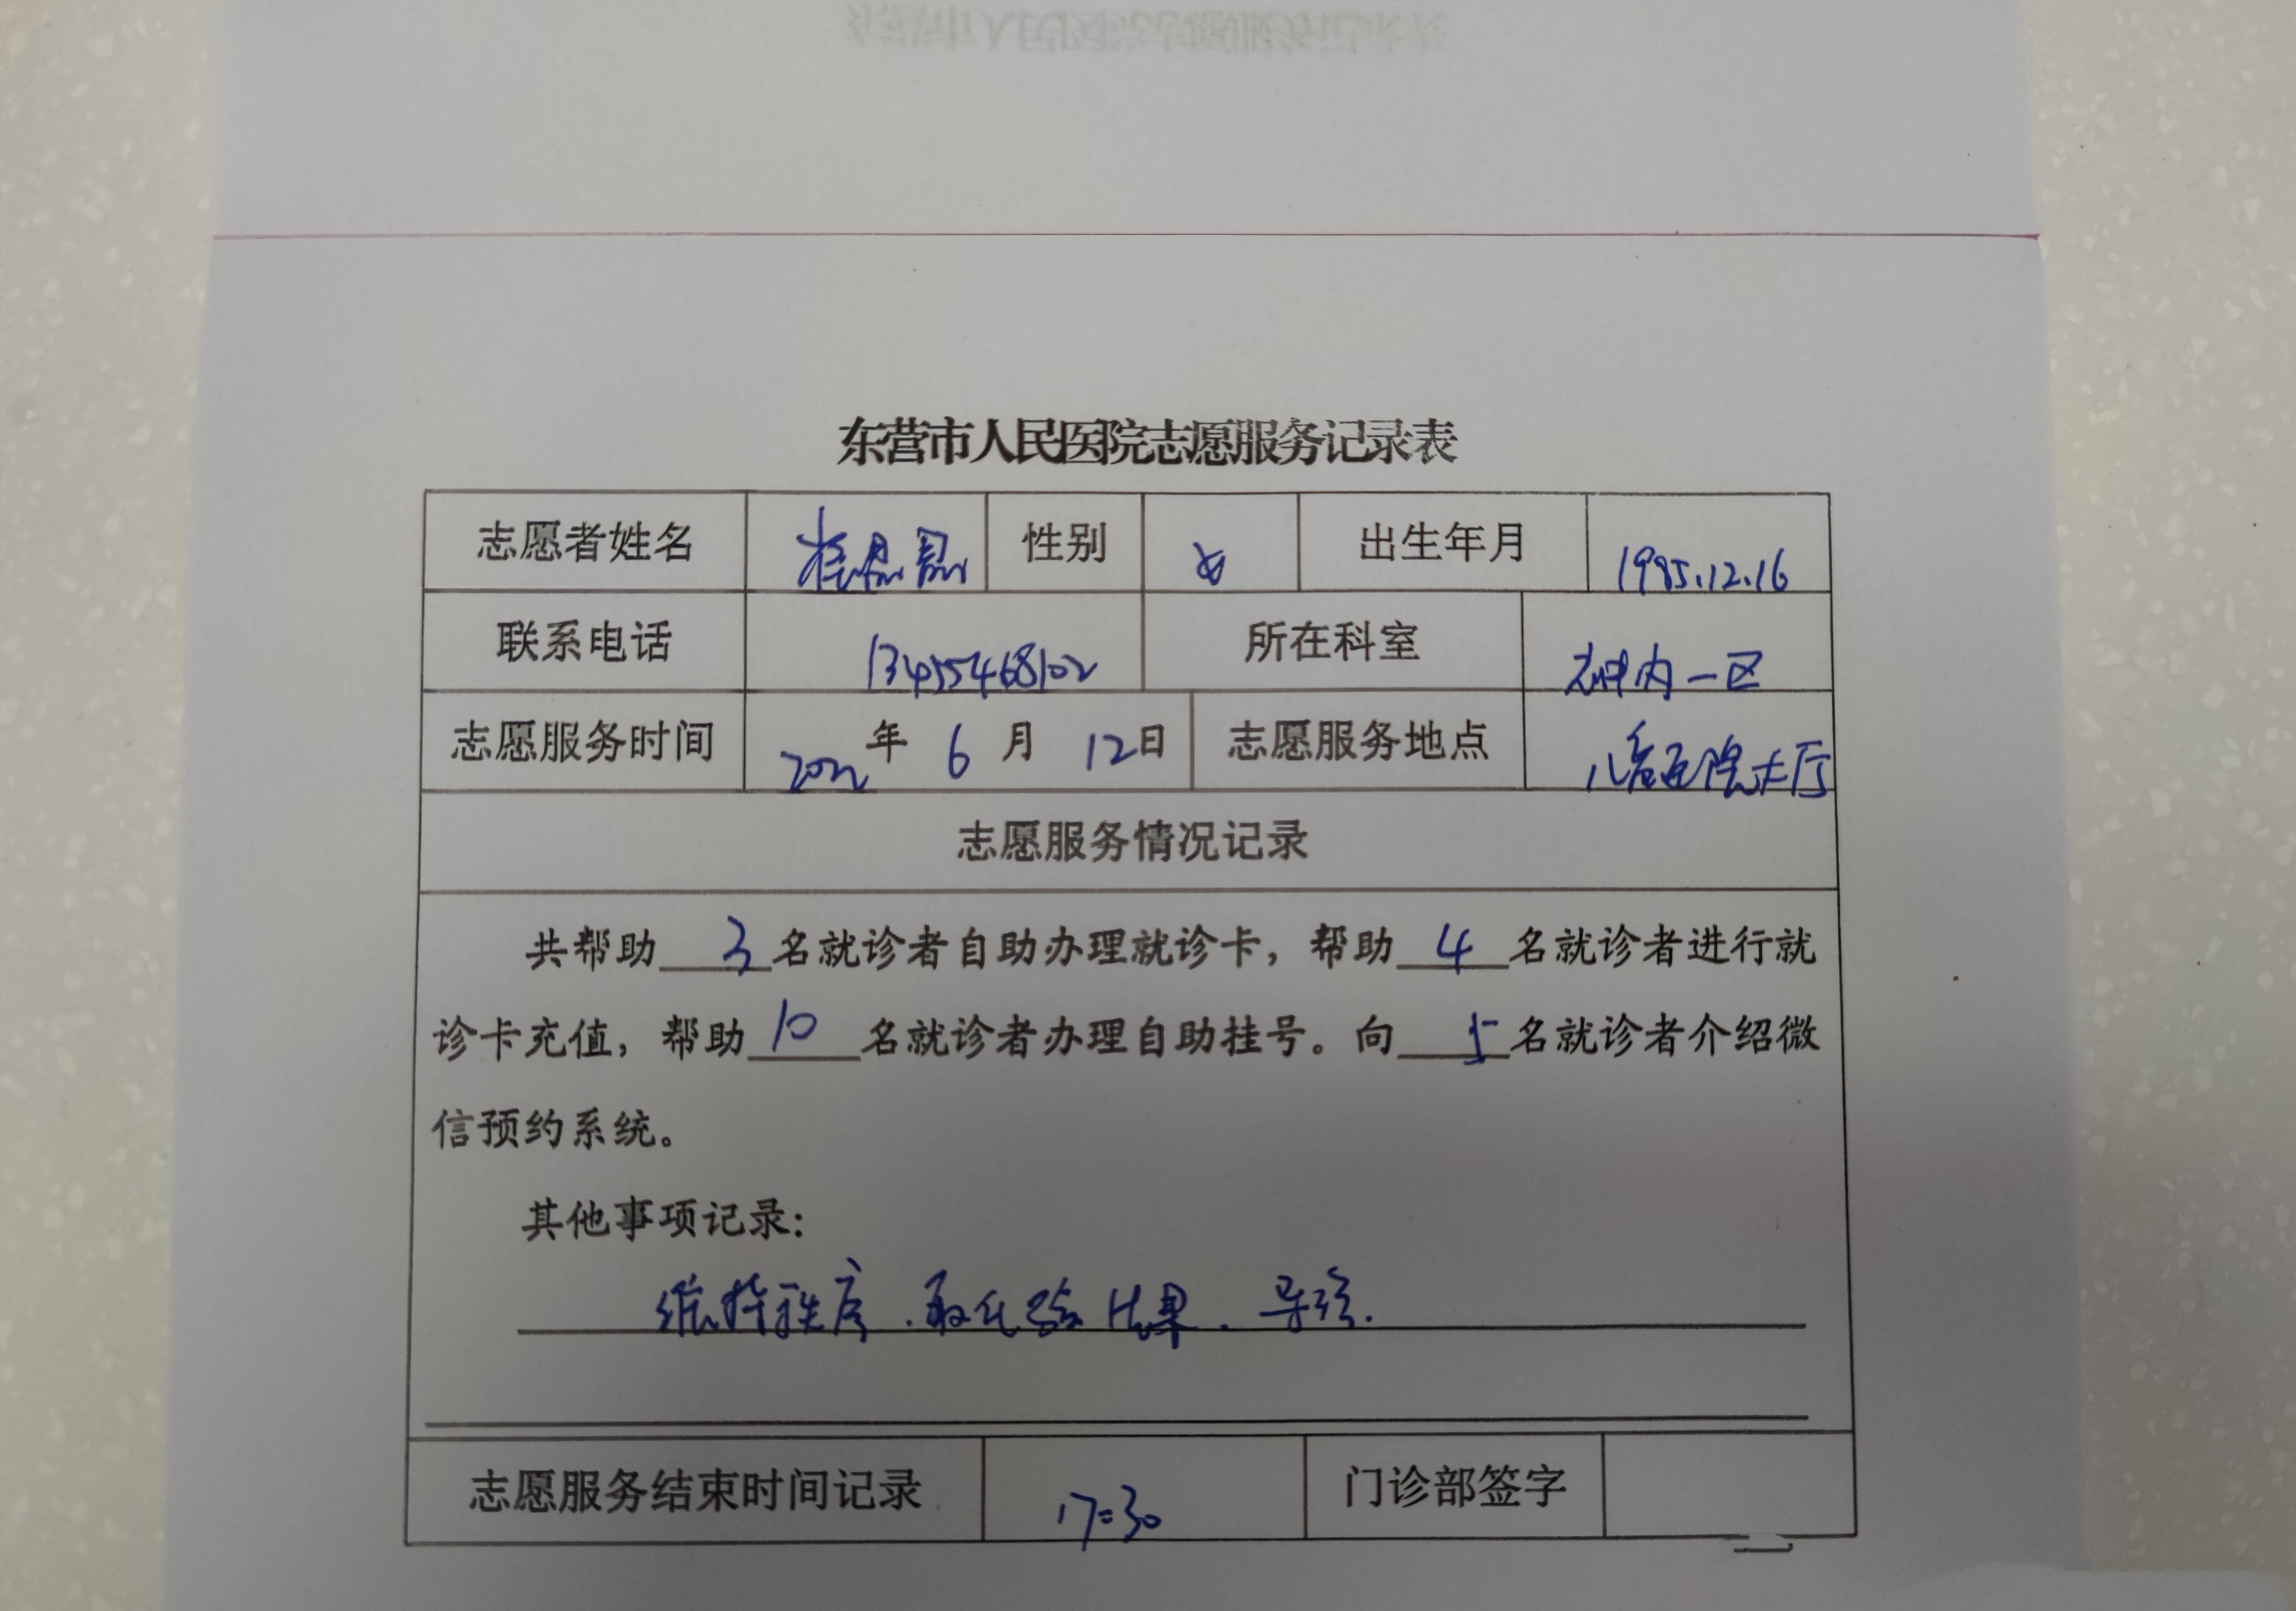 东营市人民医院志愿服务记录表
志愿者姓名 性别 女 出生年月 1995.12.16
联系电话 13455468102 所在科室 神内一区
志愿服务时间 2022年 6 月 12日 志愿服务地点 儿童医院大厅
志愿服务情况记录
共帮助 3 名就诊者自助办理就诊卡，帮助 4 名就诊者进行就
诊卡充值，帮助 10 名就诊者办理自助挂号。向 5 名就诊者介绍微
信预约系统。
其他事项记录：
维持秩序．取化验结果．导诊.
志愿服务结束时间记录 17:30 门诊部签字